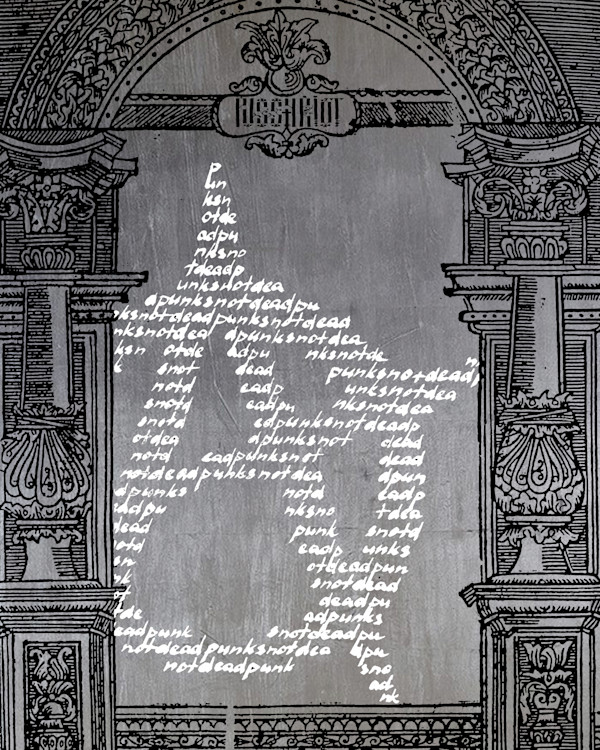 P
un
ksn
otde
adpu
nksno
tdeadp
unksnotdea
dpunksnotdeadpu
nksnotdeadpunksnotdead
nksnotdea dpunksnotdea
ksn otde adpu nksnotde n
k snot dead punksnotdead
notd eadp unksnotdea
snotd eadpu nksnotdea
snotd edpunksnotdeadp
otdea dpunksnot dead
notd eadpunksnot dead
notdeadpunksnotdea dpun
dpunks notd eadp
adpu nksno tdea
dead punk snotd
otd eadp unks
sn otdeadpun
nk snotdead
ot deadpu
de adpunks
eadpunk snotdeadpu
notdeadpunksnotdea dpu
notdeadpunk sno
ad
nk